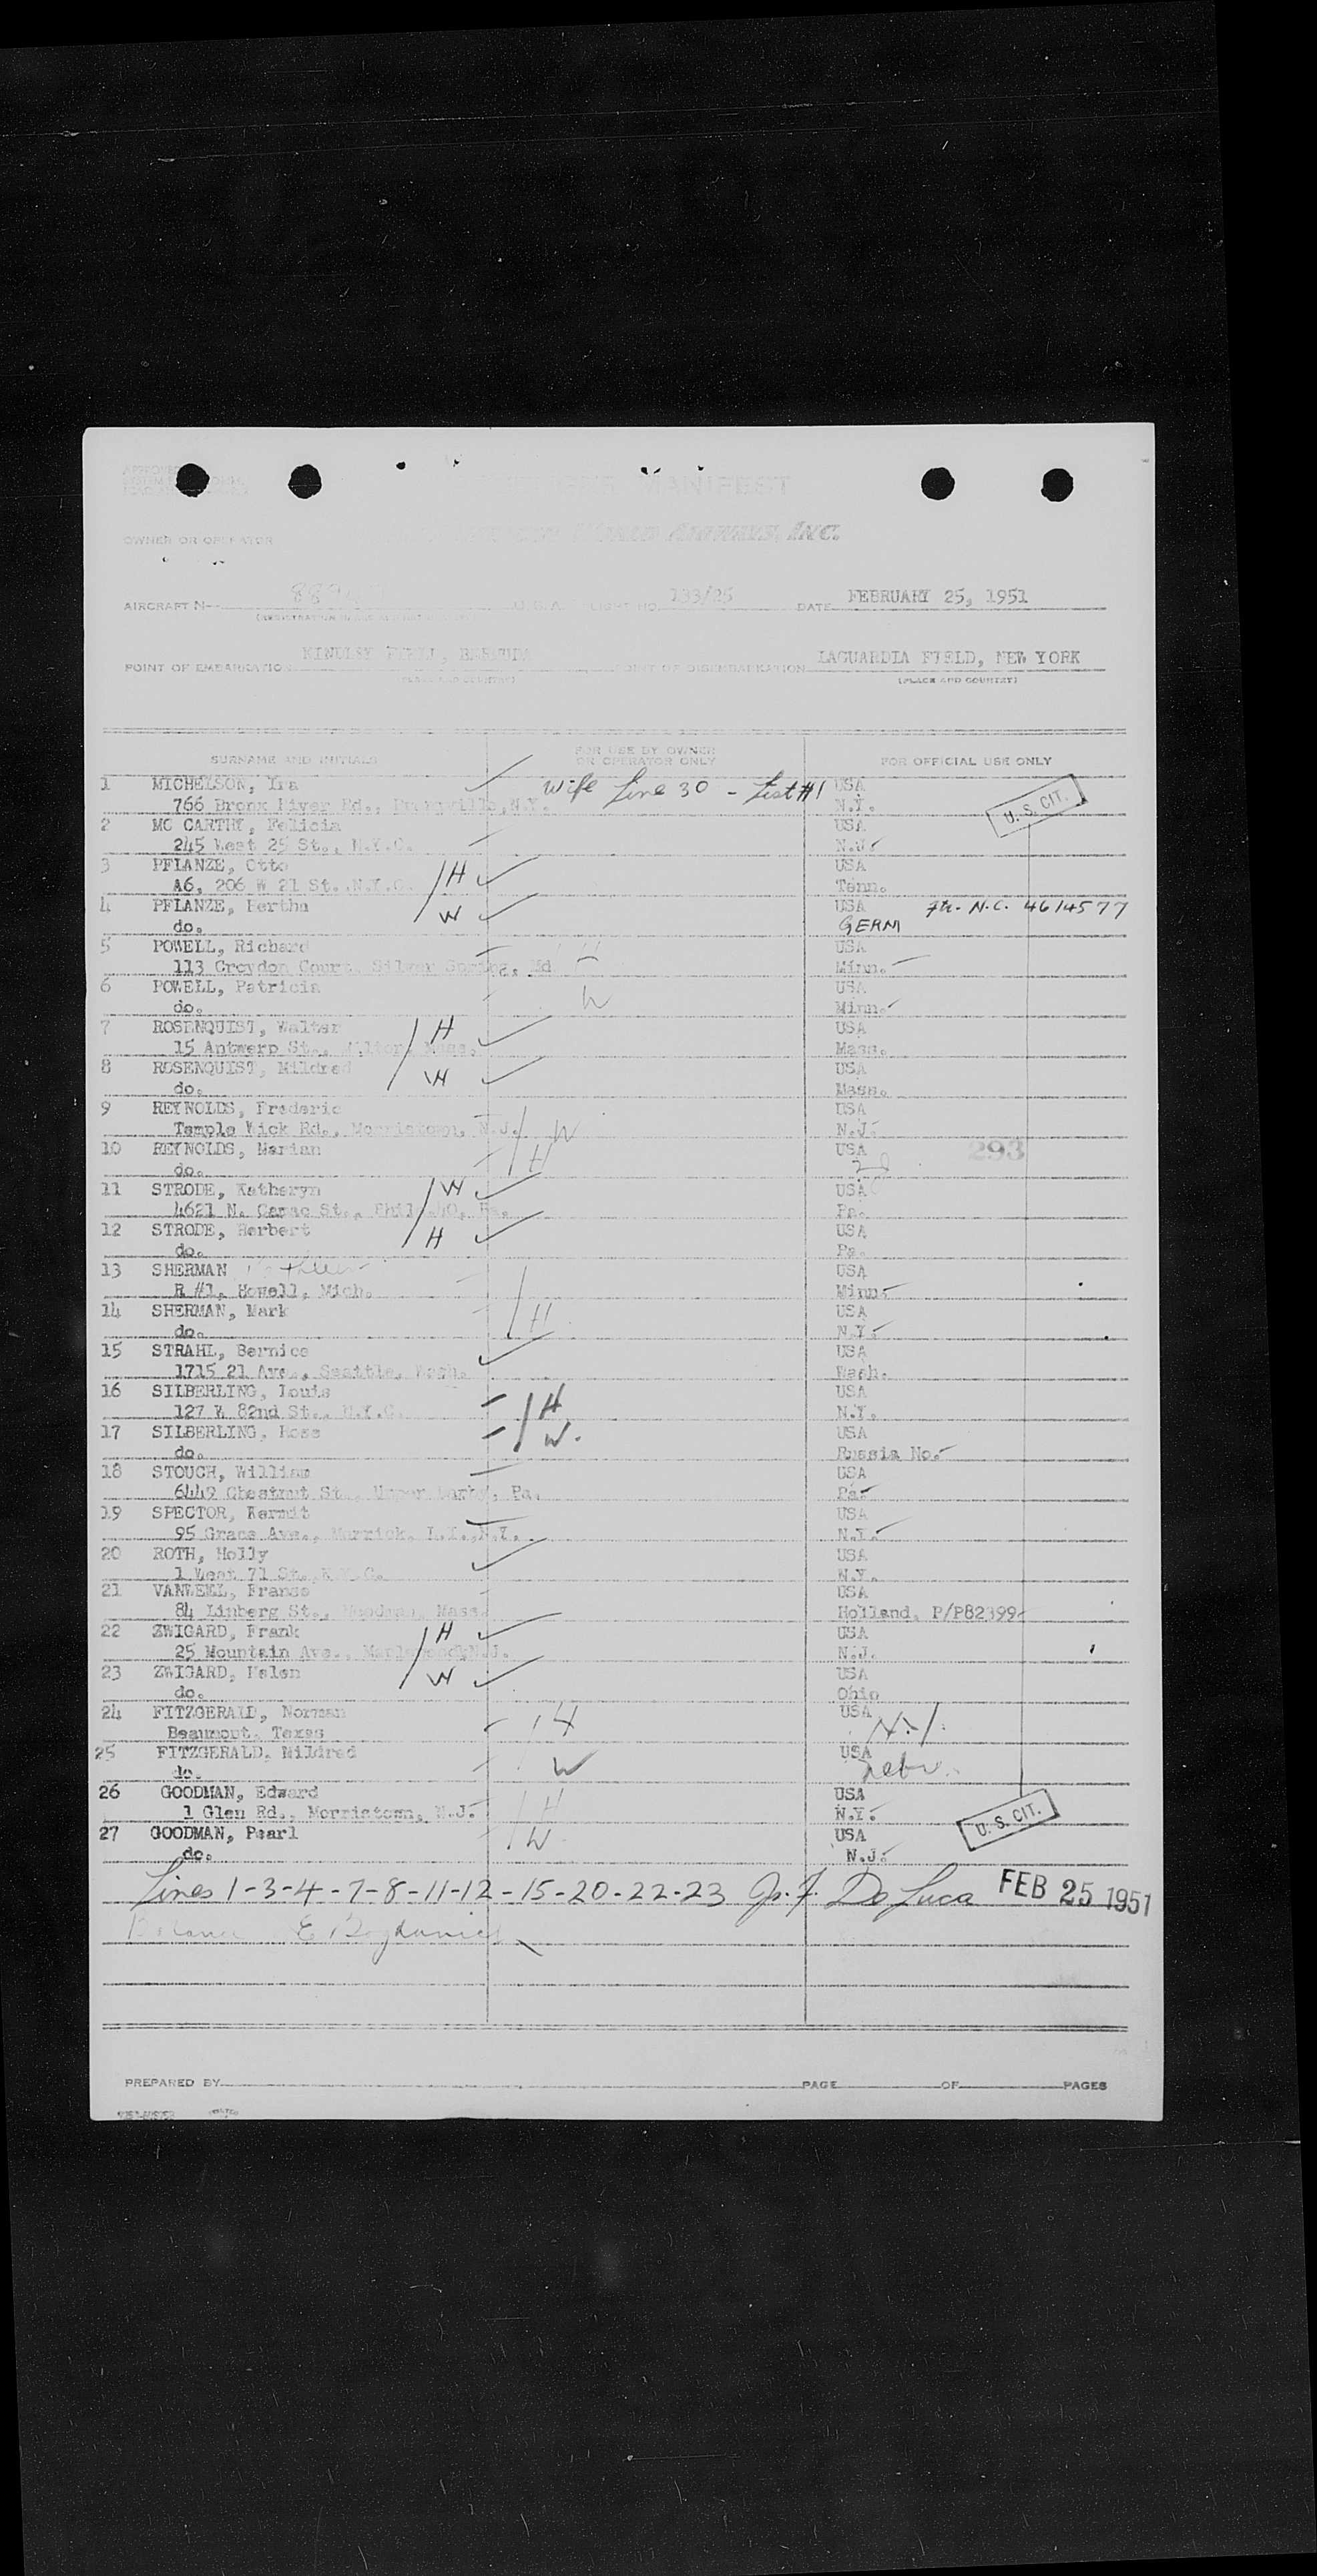 MANIFEST
OWNER OR OPERATOR AIRWAYS, INC.
AIRCRAFT N-- FLIGHT NO. 133/25 DATE FEBRUARY 25, 1951
POINT OF EMBARKATION KINDLEY FIELD, BERMUDA POINT OF DISEMBARKATION LAGUARDIA FIELD, NEW YORK
(PLACE AND COUNTRY) (PLACE AND COUNTRY)
SURNAME AND INITIALS FOR USE BY OWNER OR OPERATOR ONLY FOR OFFICIAL USE ONLY
1 MICHELSON, Ira Wife Line 30 - List #1 USA
766 Bronx River Rd., N.Y. N.Y. U. S. CIT.
2 MC CARTHY, Felicia USA
245 West 25 St., N.Y.C. N.J.
3 PFLANZE, Otto H USA
A6, 206 W 21 St. N.Y.C. Tenn.
4 PFLANZE, Bertha W USA N.C. 4614577
do. GERM
5 POWELL, Richard H USA
113 Croydon Court, Silver Spring, Md Minn.
6 POWELL, Patricia W USA
do. Minn.
7 ROSENQUIST, Walter H USA
15 Antwerp St., Milton, Mass. Mass.
8 ROSENQUIST, Mildred W USA
do. Mass.
9 REYNOLDS, Frederic W USA
Temple Wick Rd., Morristown, N.J. N.J.
10 REYNOLDS, Marian H USA 293
do.
11 STRODE, Katheryn W USA
4621 N. Camac St., Phil 40, Pa. Pa.
12 STRODE, Herbert H USA
do. Pa.
13 SHERMAN USA
R #1, Howell, Mich. Minn.
14 SHERMAN, Mark H USA
do. N.Y.
15 STRAHL, Bernice USA
1715 21 Ave., Seattle, Wash. Wash.
16 SILBERLING, Louis H USA
127 W 82nd St., N.Y.C. N.Y.
17 SILBERLING, Rose W. USA
do. Russia No.
18 STOUCH, William USA
6449 Chestnut St., Upper Darby, Pa. Pa.
19 SPECTOR, Kermit USA
95 Grace Ave., Merrick, L.I., N.Y. N.Y.
20 ROTH, Holly USA
1 West 71 St. N.Y.C. N.Y.
21 USA
84 Linberg St., Mass. Holland, P/P82399
22 ZWIGARD, Frank H USA
25 Mountain Ave., Maplewood, N.J. N.J.
23 ZWIGARD, Helen W USA
do. Ohio
24 FITZGERALD, Norman H USA
Beaumont, Texas N.Y.
25 FITZGERALD, Mildred W USA
do. Nebr.
26 GOODMAN, Edward H USA
1 Glen Rd., Morristown, N.J. N.Y. U. S. CIT.
27 GOODMAN, Pearl W USA
do. N.J.
Lines 1-3-4-7-8-11-12-15-20-22-23 De Luca FEB 25 1951
PREPARED BY PAGE OF PAGES